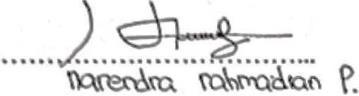 narendra rahmadian P.